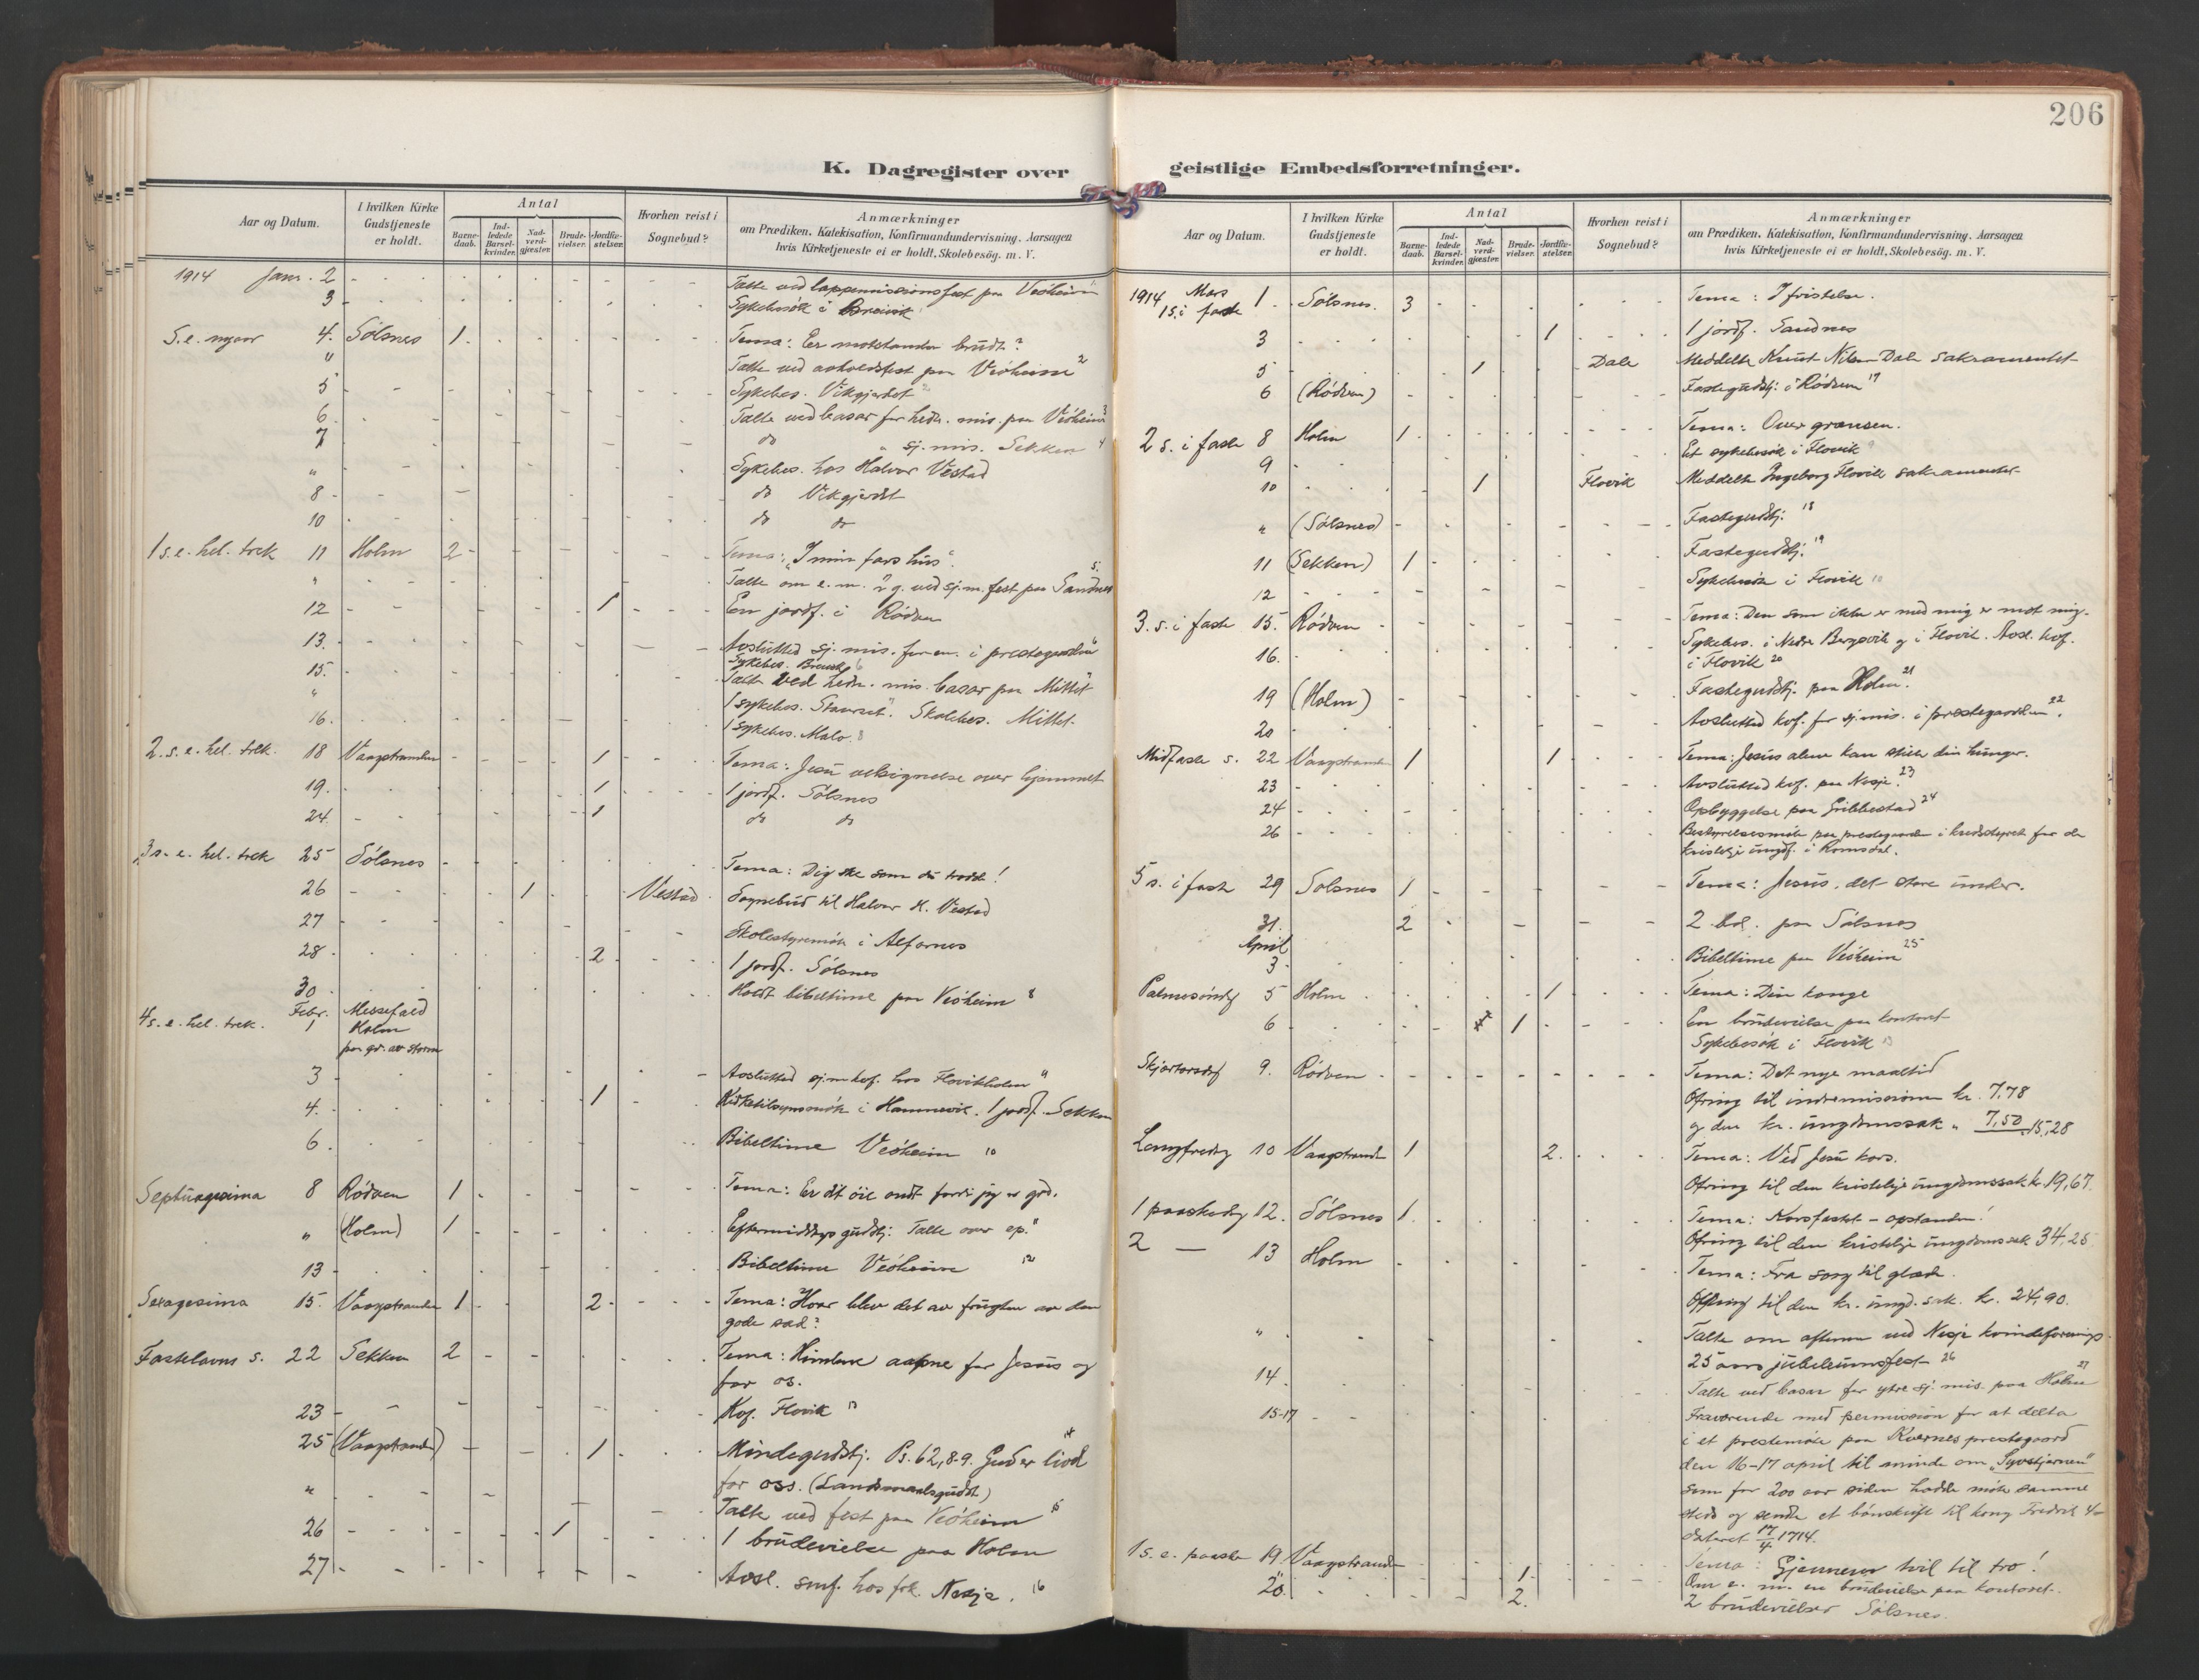 206
K. Dagregister over
Aar og Datum.
I hvilken Kirke Gudstjeneste er holdt.
Antal
Barnedaab.
Indledede Barselkvinder.
Nadverdgjæster.
Brudevielser.
Jordfæstelser.
Hvorhen reist i Sognebud?
Anmærkninger
om Prædiken, Katekisation, Konfirmandundervisning, Aarsagen
hvis Kirketjeneste ei er holdt, Skolebesög. m. V.
1914 Janr. 2 Talte ved lappemissionsfest paa Veöheim
3 Sykebesök i Breivik
S. e. nyaar 4. Sölsnes 1. Tema: Er motstanden brudt?
" Talte ved avholdsfest paa Veöheim 2
5 Sykebes. Vikgjerdet
6. Talte ved basar for hedn. mis. paa Veöheim 3
7 do " sj. mis. Sekken 4
" Sykebes. hos Halvor Vestad
8 do Vikgjerdet
10 do do
1 s. e. hel. trek 11 Holm 2 Tema: "I min fars hus".
" Talte om e. m. 2 g. ved sj. m. fest paa Sandnes 5.
12 1 En jordf. i Rödven
13. Avslutted sj. mis. foren. i prestegaarden 6
15. Sykebes. Breivik
" Talte ved hedn. mis. basar paa Mittet
16. 1 sykebes. Stavset. Skolebes. Mittet.
1 sykebes. Malo. 8
2. s. e. hel. trek. 18 Vaagstranden 1 Tema: Jesu velsignelse over hjemmet
19. 1 1 jordf. Sölsnes
24. 1 do do
3 s. e. hel. trek 25 Sölsnes Tema: Dig ske som du trodde!
26 1 Vestad Sognebud til Halvor K. Vestad
27 Skolestyremöte i Alfarnes
28 2 1 jordf. Sölsnes
30 Holdt bibeltime paa Veöheim 8
4 s. e. hel. trek. Febr. 1 Messefald Holm paa gr. av storm
3 Avslutted sj. m. kof. hos Flovikholm
4. 1 Kirketilsynsmöte i Hammervik. 1 jordf. Sekken
6. Bibeltime Veöheim 10
Septuagesima 8 Rödven 1 Tema: Er dit öie ondt fordi jeg er god.
" (Holm) 1 Eftermiddags gudstj. Talte over ep.
13 Bibeltime Veöheim 12
Sexagesima 15. Vaagstranden 1 2 Tema: Hvor blev det av frugten av den
gode sæd?
Fastelavns s. 22 Sekken 2 Tema: Himlene aapne for Jesus og
for os.
23 Kof. Flovik 13
25 (Vaagstranden) 1 Mindegudstj. Ps. 62, 8-9. Gud er livd 14
for oss. (Landsmaalsgudst.)
" Talte ved fest paa Veöheim 15
26 1 1 brudevielse paa Holm
27 Avsl. smf. hos frk. Nesje. 16
geistlige Embedsforretninger.
Aar og Datum.
I hvilken Kirke Gudstjeneste er holdt.
Antal
Barnedaab.
Indledede Barselkvinder.
Nadverdgjæster.
Brudevielser.
Jordfæstelser.
Hvorhen reist i Sognebud?
Anmærkninger
om Prædiken, Katekisation, Konfirmandundervisning, Aarsagen
hvis Kirketjeneste ei er holdt, Skolebesög. m. V.
1914 Mars 1 1 s. i faste Sölsnes. 3 Tema: I fristelse.
3 1 1 jordf. Sandnes
5 1 Dale Meddelte Knut Nilsen Dale sakramentet
6 (Rödven) Fastegudstj. i Rödven 17
2 s. i faste 8 Holm 1 Tema: Over grænsen.
9 Et sykebesök i Flovik
10 1 Flovik Meddelte Ingeborg Flovik sakramentet
" (Sölsnes) Fastegudstj. 18
11 (Sekken) 1 Fastegudstj. 19
12 Sykebesök i Flovik 10
3. s. i faste 15. Rödven Tema: Den som ikke er med mig er mot mig.
16. Sykebes. i Nedre Bergsvik og i Flovik. Avsl. kof.
i Flovik 20
19 (Holm) Fastegudstj. paa Holm. 21
20 Avsluttet kof. for sj. mis. i prestegaarden. 22
Midfaste s. 22 Vaagstranden 1 1 Tema: Jesus alene kan stille din hunger.
23 Avslutted kof. paa Nesje. 23
24 Opbyggelse paa Gribbestad 24
26 Bestyrelsesmöte paa prestegaarden i kredsstyret for de
kristelige ungdf. i Romsdal.
5 s. i faste 29 Sölsnes 1 Tema: Jesus, det store under.
31. 2 2 bd. paa Sölsnes
April 3 Bibeltime paa Veöheim 25
Palmesöndg 5 Holm 1 Tema: Din konge
6 1 En brudevielse paa kontoret
Sykebesök i Flovik
Skjærtorsdg 9. Rödven Tema: Det nye maaltid
Ofring til indremissionen kr. 7,78
og den kr. ungdomssak " 7,50 15,28
Langfredag 10 Vaagstranden 1 2. Tema: Ved Jesu kors.
Ofring til den kristelige ungdomssak kr. 19,67.
1 paaskedag 12. Sölsnes 1. Tema: Korsfæstet – opstanden!
Ofring til den kristelige ungdomssak 34,25.
2 — 13 Holm Tema: Fra sorg til glæde.
Offring til den kr. ungd. sak. kr. 24,90.
" Talte om aftenen ved Nesje kvindeforenings
25 aars jubileumsfest 26
14. Talte ved basar for ytre sj. mis. paa Holm 27
15-17 Fraværende med permission for at delta
i et prestemöte paa Kvernes prestegaard
den 16-17 april til minde om "Syvstjernen"
som for 200 aar siden hadde möte samme
sted og sendte et bönskrift til kong Fredrik 4
dateret 17/4 1714.
1 s. e. paaske 19. Vaagstranden Tema: Gjennem tvil til tro!
" 1. Om e. m. en brudevielse paa kontoret.
20. 2. 2 brudevielser Sölsnes.